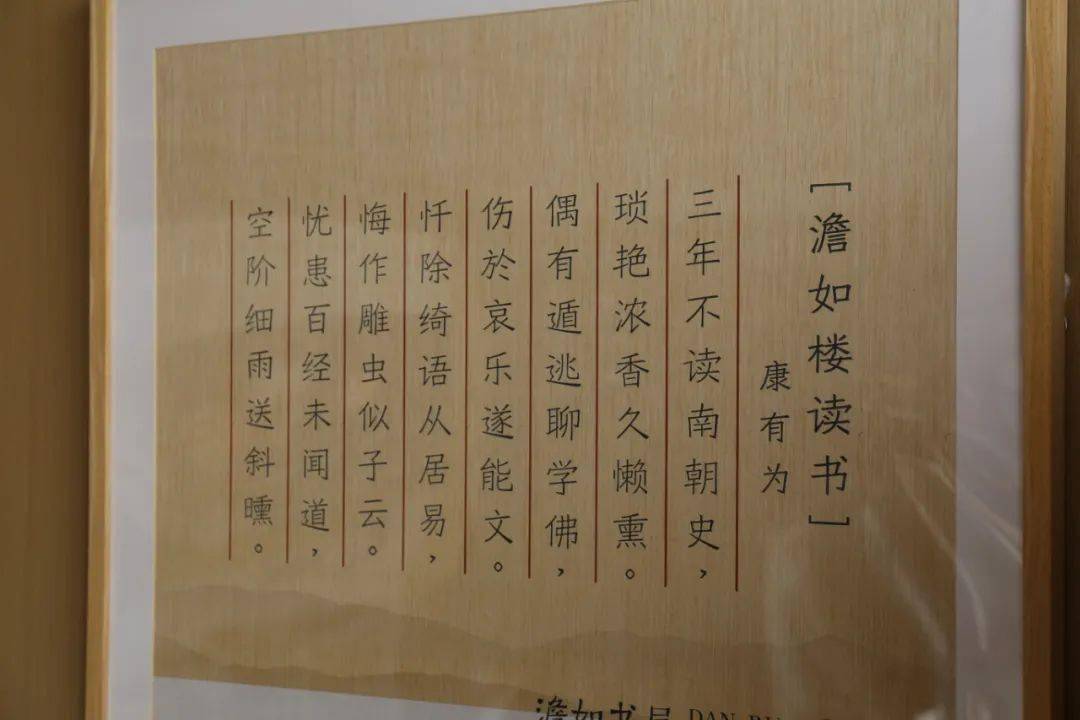 [澹如楼读书]
康有为
三年不读南朝史，
琐艳浓香久懒熏。
偶有遁逃聊学佛，
伤於哀乐遂能文。
忏除绮语从居易，
悔作雕虫似子云。
忧患百经未闻道，
空阶细雨送斜曛。
澹如书屋 DAN